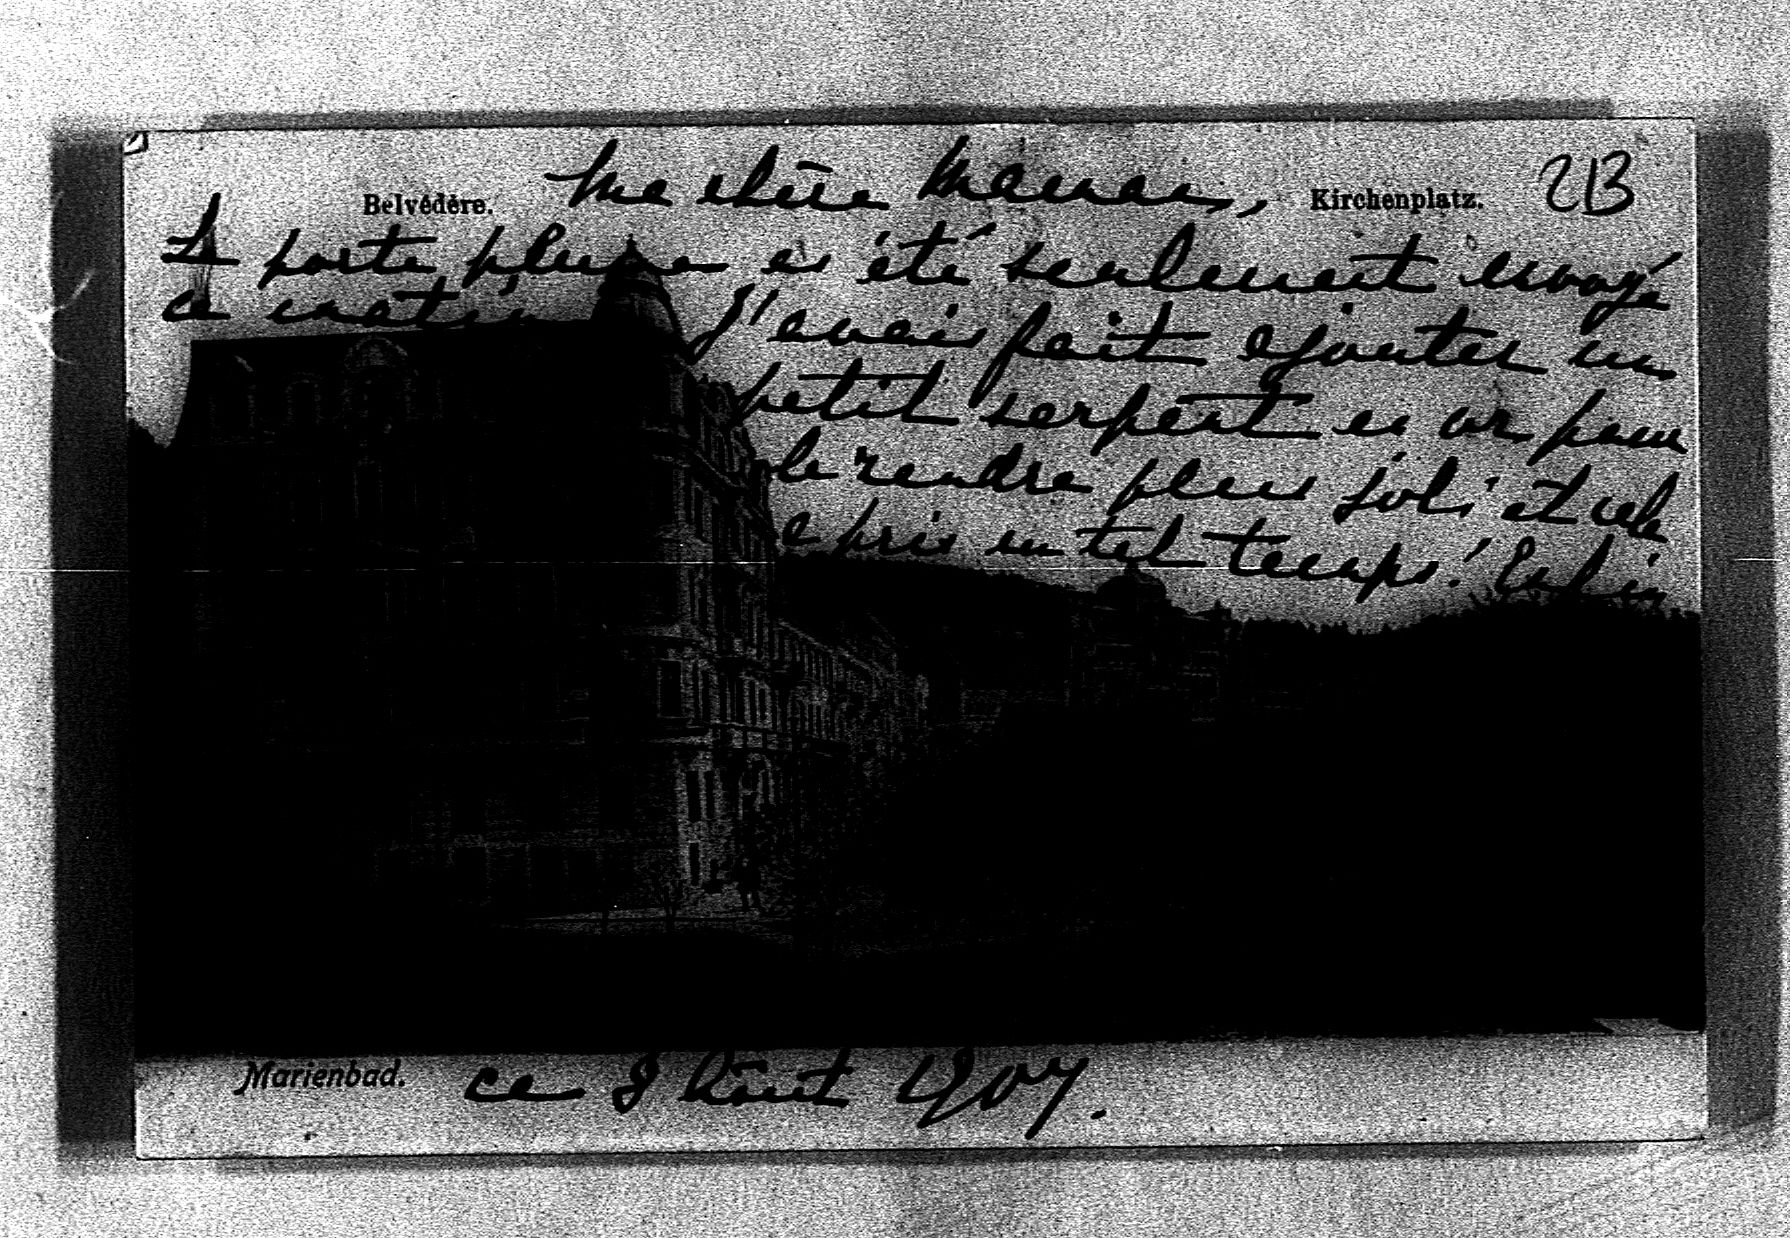 Belvédère.
Ma chère Maman,
Kirchenplatz.
2B
Le porte plume a été seulement envoyé
ce matin. J'avais fait ajouter un
petit serpent en or pour
le rendre plus joli et cela
a pris un tel temps! Enfin
Marienbad.
ce 8 Août 1907.